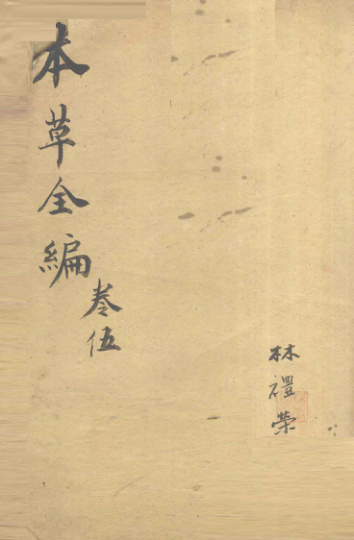 本草全編
卷伍
林禮榮